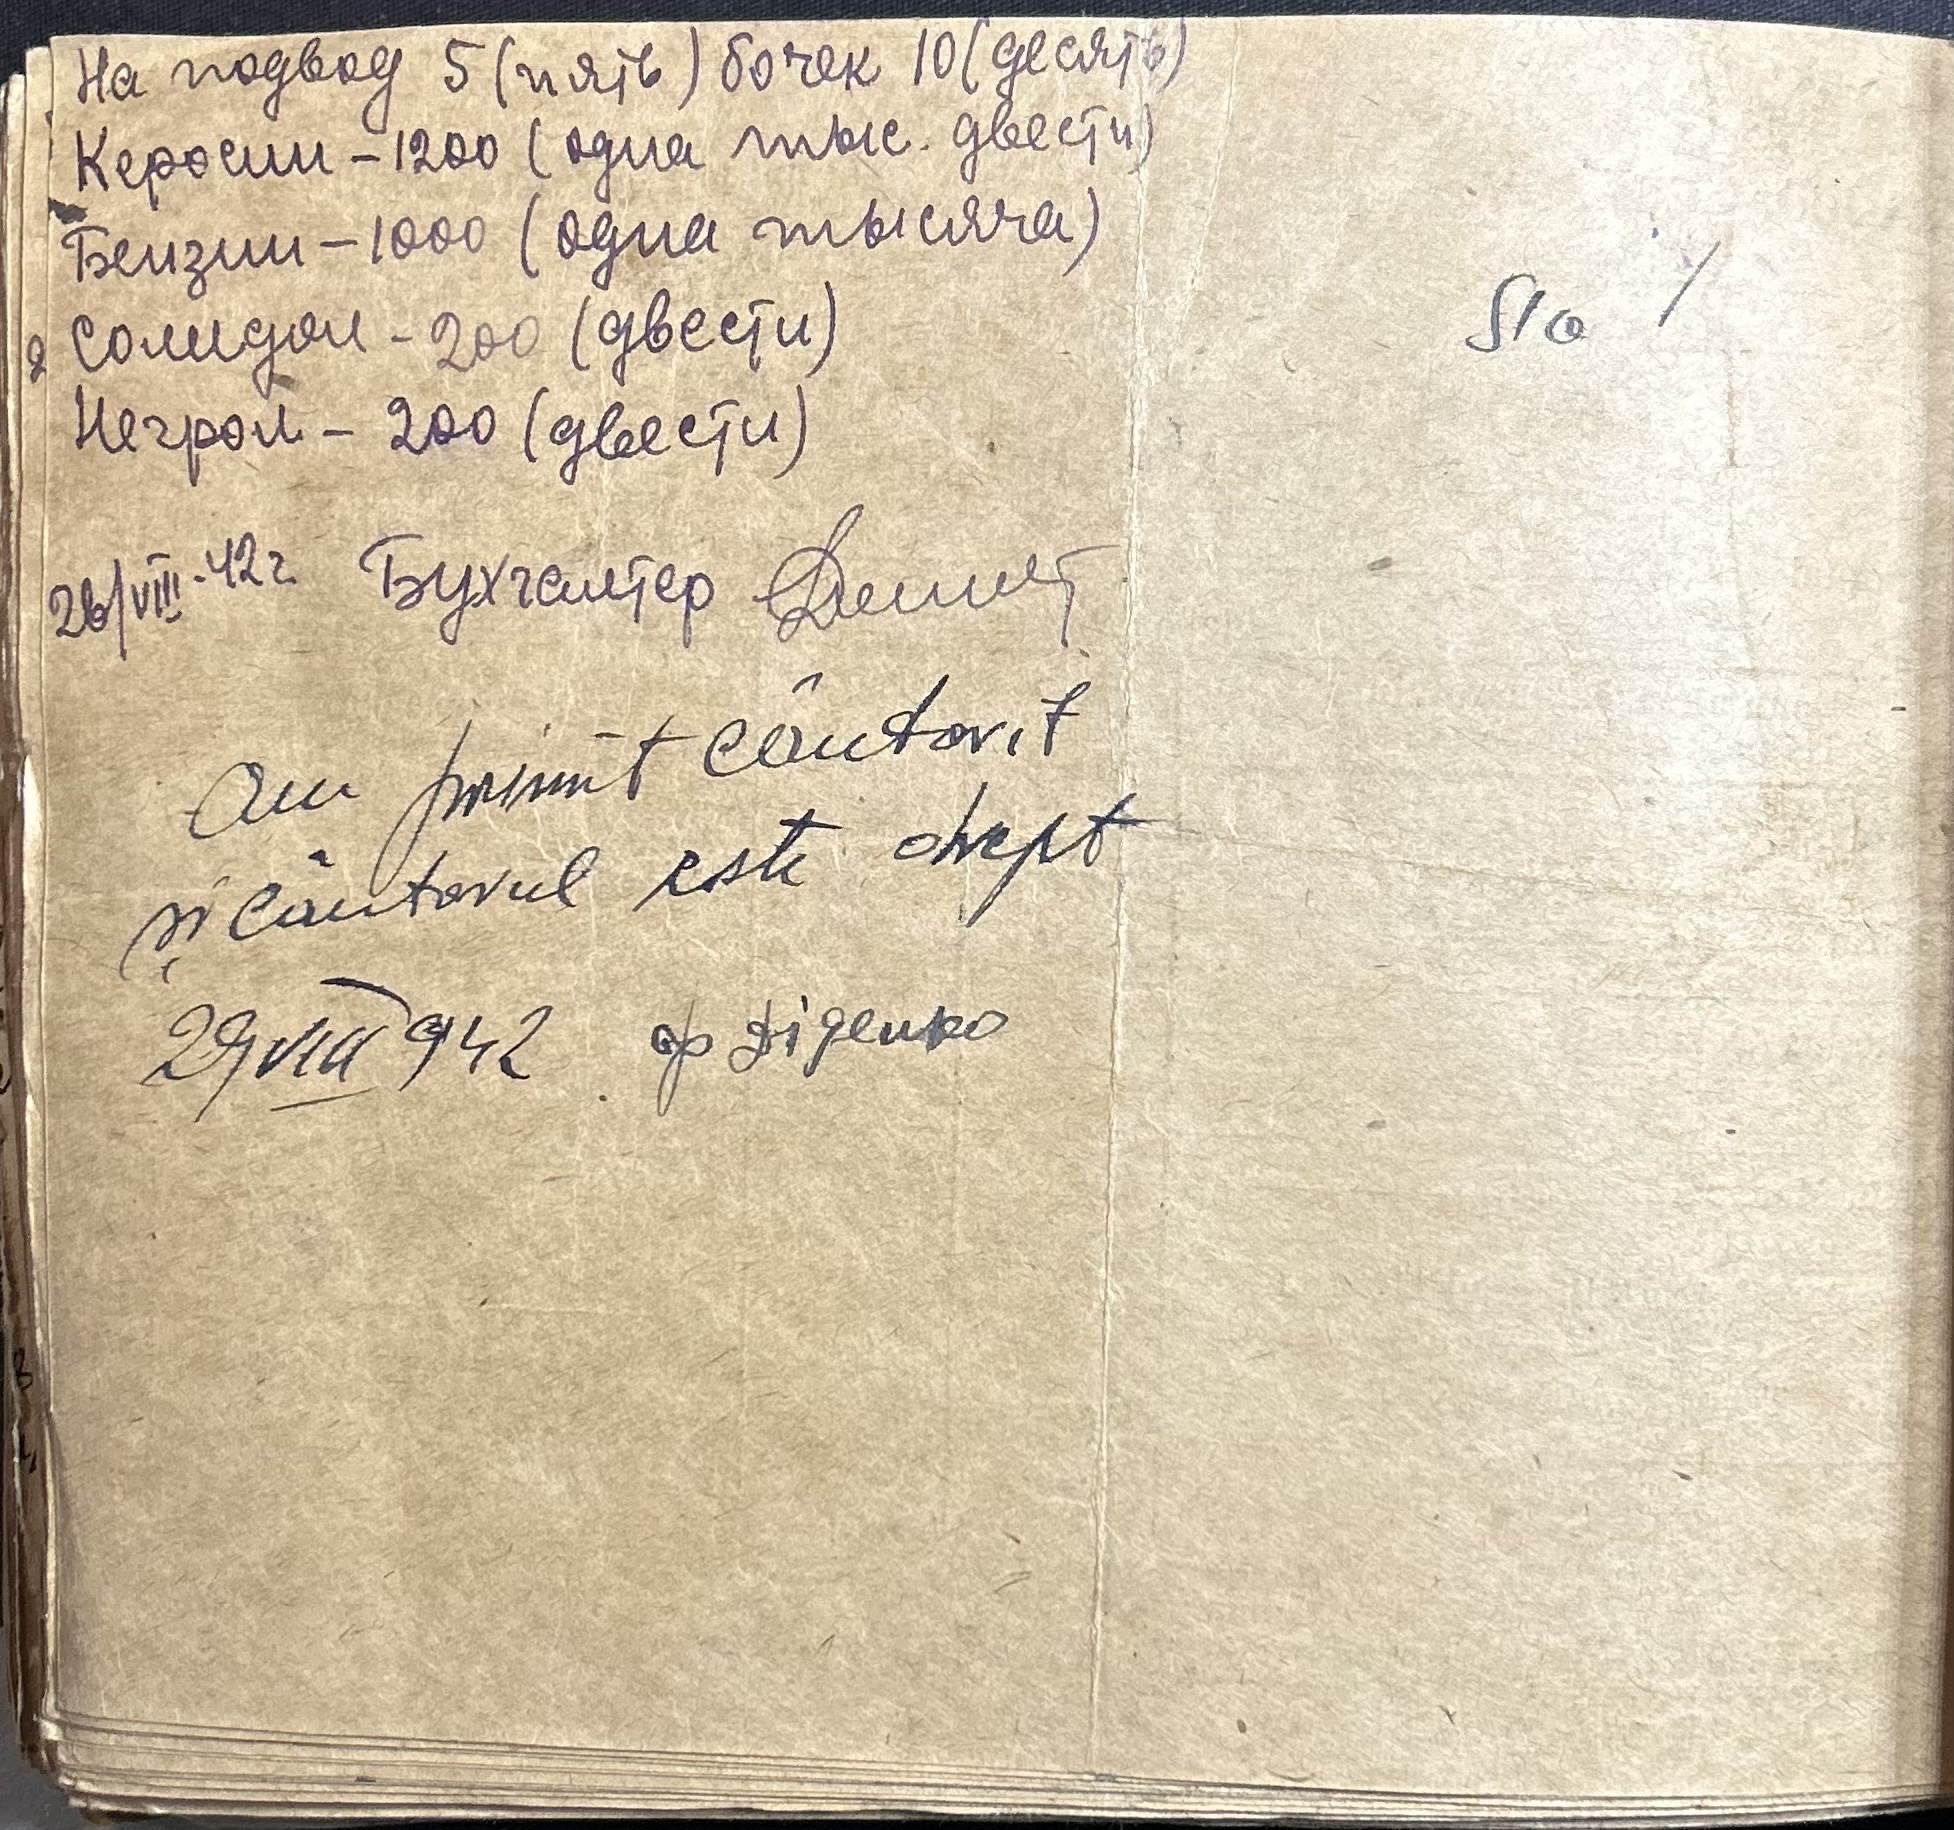 На подвод 5 (пять) бочек 10 (десять)
Керосин – 1200 (одна тыс. двести)
Бензин – 1000 (одна тысяча)
Солидол – 200 (двести)
Негрол – 200 (двести)
26/VIII-42 г. Бухгалтер
Am primit cântarit
și cântarul este drept
29 VIII 942 ф Діденко